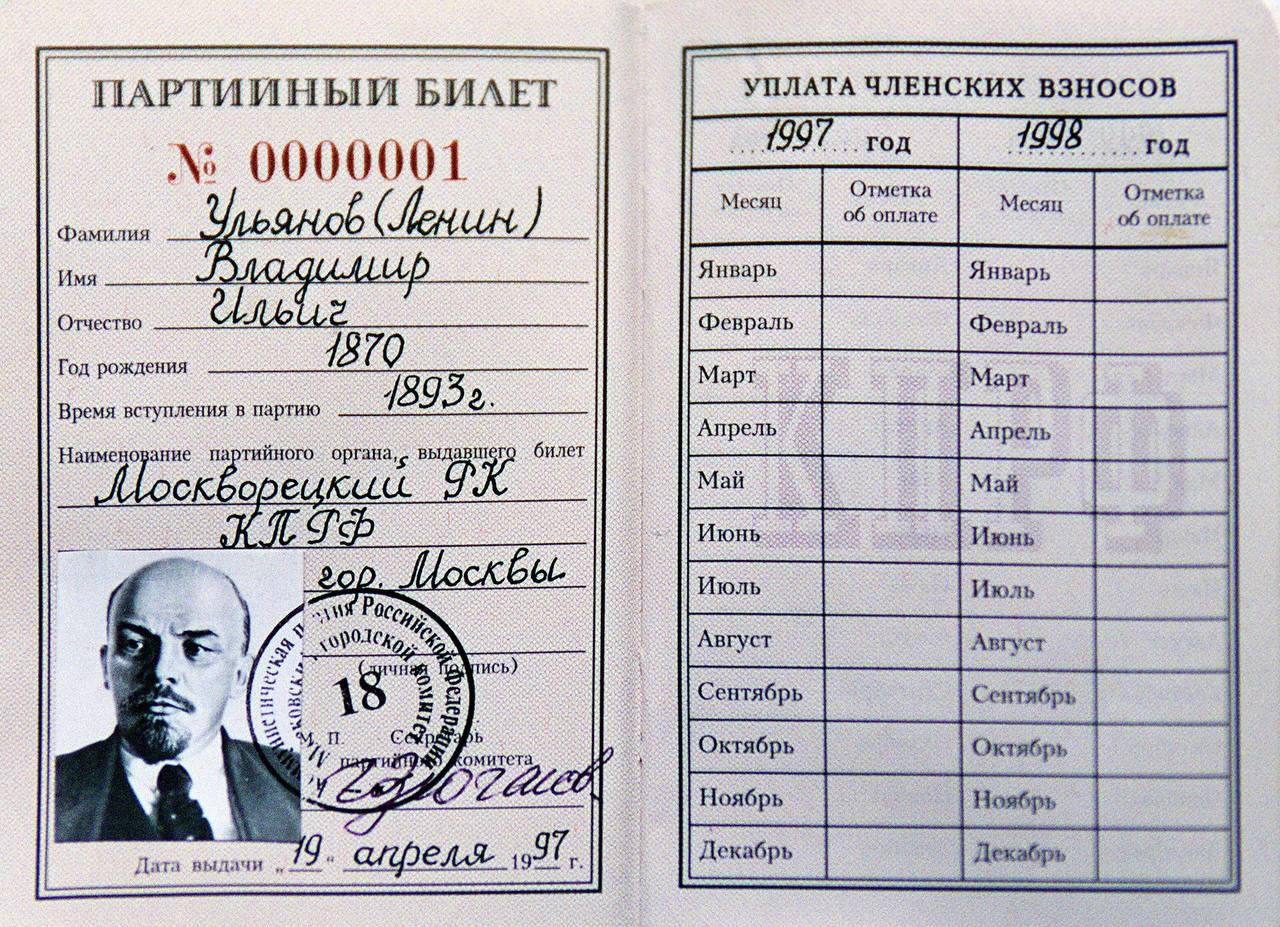 ПАРТИЙНЫЙ БИЛЕТ
№ 0000001
Фамилия Ульянов (Ленин)
Имя Владимир
Отчество Ильич
Год рождения 1870
Время вступления в партию 1893 г.
Наименование партийного органа, выдавшего билет
Москворецкий РК
КПРФ
гор. Москвы
(личная подпись)
18
П. Секретарь
партийного комитета
Дата выдачи „19“ апреля 1997 г.
Российской Федерации
городской комитет
УПЛАТА ЧЛЕНСКИХ ВЗНОСОВ
1997 год 1998 год
Месяц Отметка об оплате Месяц Отметка об оплате
Январь Январь
Февраль Февраль
Март Март
Апрель Апрель
Май Май
Июнь Июнь
Июль Июль
Август Август
Сентябрь Сентябрь
Октябрь Октябрь
Ноябрь Ноябрь
Декабрь Декабрь